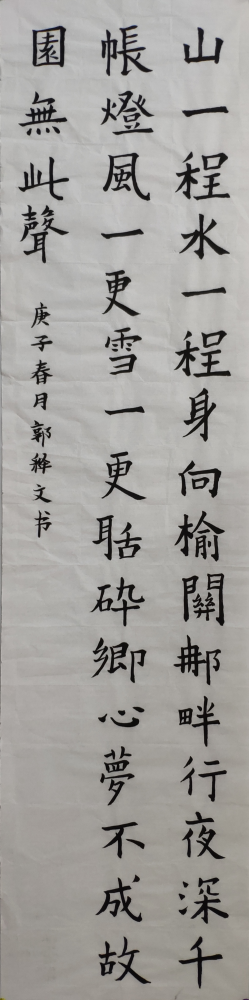 山一程水一程身向榆關那畔行夜深千
帳燈風一更雪一更聒碎鄉心夢不成故
園無此聲
庚子春月郭稡文书